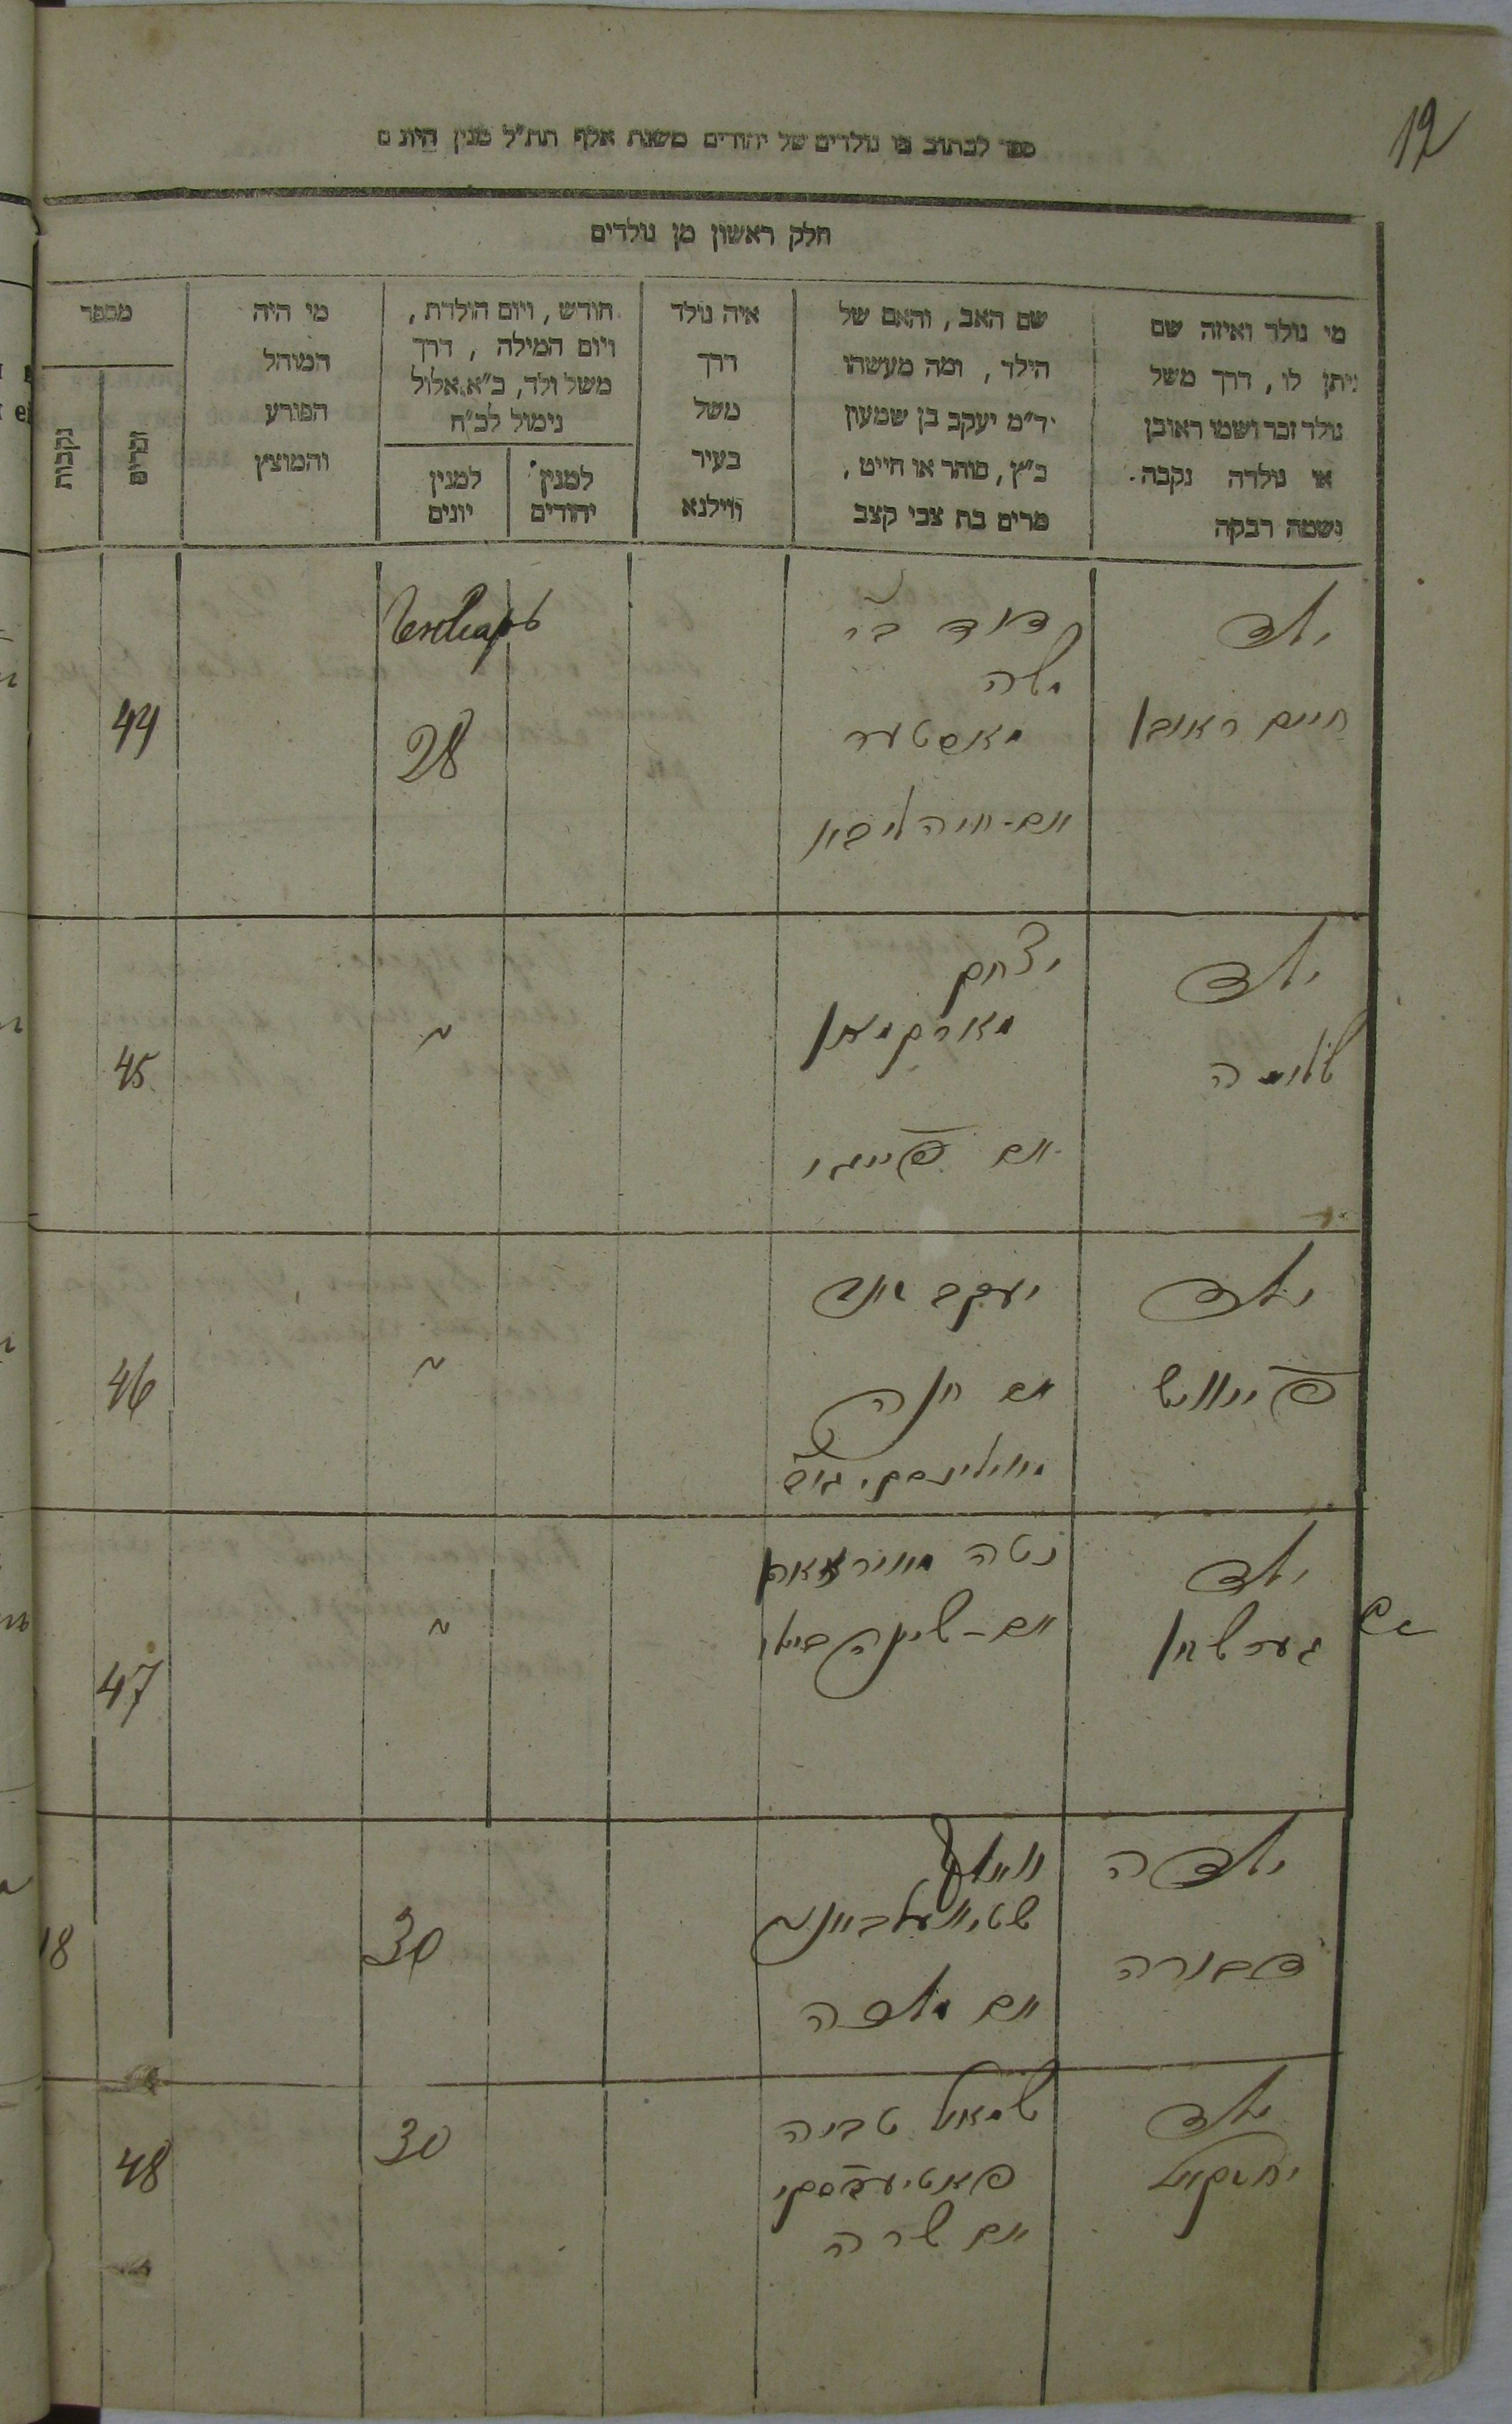 12
ספר לכתוב בו נולדים של יהודים משנת אלף תת״ל מנין היונים
חלק ראשון מן נולדים
מי נולד ואיזה שם
ניתן לו, דרך משל
נולד זכר ושמו ראובן
או נולדה נקבה
ושמה רבקה
שם האב, והאם של
הילד, ומה מעשהו
ד״מ יעקב בן שמעון
כ״ץ, סוחר או חייט,
מרים בת צבי קצב
איה נולד
דרך
משל
בעיר
ווילנא
חודש, ויום הולדת,
ויום המילה, דרך
משל ולד, כ״א אלול
נימול לכ״ח
למנין יהודים
למנין יונים
מי היה
המוהל
הפורע
והמוצץ
מספר
זכרים
נקבות
ילד
חיים ראובן
דוד בי
משה
ואם - חיה
Генварь
28
44
ילד
שלמה
יצחק
מארקמאן
ואם פייגי
45
ילד
פייוויש
יעקב
ואם חנה
46
ילד
גערשון
נטה
ואם -
47
ילדה
דבורה
וואלף
ואם מלכה
30
18
ילד
יחזקאל
שמואל טביה
ואם שרה
30
48